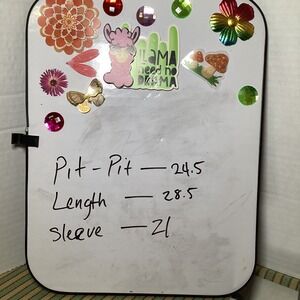 LLAMA
need no
DRAMA
Pit - Pit — 24.5
Length — 28.5
Sleeve — 21